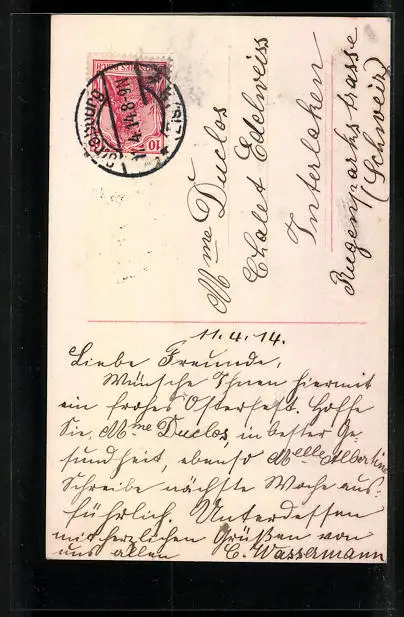 DEUTSCHES REICH
10
Strassburg
11.4.14.8-9N
(ELS.)
Mme Duclos
Chalet Edelweiss
Interlaken
Rugenparkstrasse
(Schweiz)
11.4.14.
Liebe Freunde,
Wünsche Ihnen hiermit
ein frohes Osterfest. Hoffe
Sie, Mme Duclos, in bester Ge-
sundheit, ebenso Melle Albertine
Schreibe nächste Woche aus-
führlich. Unterdessen
mit herzlichen Grüßen von
uns allen C. Wassermann